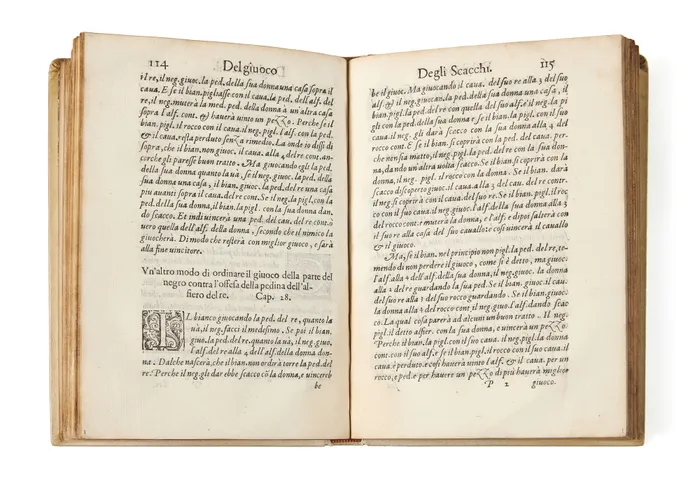 114 Del giuoco
il re, il neg. giuoc. la ped. della sua donna una casa sopra il
caua. E se il bian. pigliasse con il caua. la ped. dell'alf. del
re, il neg. muterà la med. ped. della donna à un'altra casa
sopra l'alf. cont. & hauerà uinto un pezzo. Perche se il
bian. pigl. il rocco con il caua. il neg. pigl. l'alf. con la ped.
& il caua, resta perduto senza rimedio. La onde io dissi di
sopra, che il bian. non giuoc. il caua. alla 4 del re cont. an-
corche gli paresse buon tratto. Ma giuocando egli la ped.
della sua donna quanto uà, se il neg. giuoc. la ped. della
sua donna una casa, il bian. giuoc. la ped. del re una casa
piu auanti sopra il caua. del re cont. Se il neg. la pigl. con la
ped. della sua donna, il bian. la pigl. con la sua donna dan-
do scacco. Et indi uincerà una ped. del cau. del re cont. ò
uero quella dell'alf. della donna, secondo che il nimico la
giuocherà. Di modo che resterà con miglior giuoco, e sarà
alla fine uincitore.
Vn'altro modo di ordinare il giuoco della parte del
negro contra l'offesa della pedina dell'al-
fiero del re. Cap. 28.
IL bianco giuocando la ped. del re, quanto la
uà, il neg. facci il medesimo. Se poi il bian.
giuo. la ped. del re. quanto la uà, il neg. giuo.
l'alf. del re alla 4 dell'alf. della donna don-
na. Dalche nascerà, che il bian. non ordirà torre la ped. del
re: Perche il neg. gli dar ebbe scacco cõ la donna, e uincereb
be
Degli Scacchi. 115
be il giuoc. Ma giuocando il caua. del suo re alla 3 del suo
alf. & il neg. giuocan. la ped. della sua donna uno casa, il
bian. pigl. la ped. del re con quella del suo alf. e il neg. la pi
gli con la ped. della sua donna e se il bian. la pigl. con il suo
caua. il neg. gli darà scacco con la sua donna alla 4 del
rocco cont. E se il bian. si coprirà con la ped. del caua. per-
che non sia matto, il neg. pigl. la ped. del re con la sua don-
na, dando un'altra uolta scacco. Se il bian. si coprirà con la
donna, il neg. pigl. il rocco con la sua donna. Se il bian. darà
scacco discoperto giuoc. il caua. alla 3 del cau. del re contr.
il neg. si coprirà con il caual. del suo re. Se il bian. pigl. il roc
co con il suo caua. il neg. giuoc. l'alf. della sua donna alla 3
del rocco cont. e muterà la donna, e l'alf. e dipoi salterà con
il suo re alla casa del suo cauallo: e cosi uincerà il cauallo
& il giuoco.
Ma, se il bian. nel principio non pigl. la ped. del re, te-
mendo di non perdere il giuoco, come si è detto, ma giuoc.
l'alf. alla 4 dell'alf. della donna, il neg. giuoc. la donna
alla 2 del re guardando la ped. Se il bian. giuoc. il caual.
del suo re alla 2 del suo rocco guardando. Se il bian. giuoc.
la donna alla 2 del rocco cont. il neg. pigl. l'alf. dando scac
co. La qual cosa parerà ad alcuni un buon tratto. Il neg.
pigl. il detto alfier. con la donna, e uincerà un pezzo.
Perche il bian. pigl. il rocco con il caua. la ped. alla donna
cont. con il suo alf. e se il bian. pigl. il rocco con il suo caua. il
caua. è perduto. e cosi hauerà uinto l'alf. & il caua. per un
rocco, e ped. e per hauere un pezzo di più hauerà miglior
P 2 giuoco.